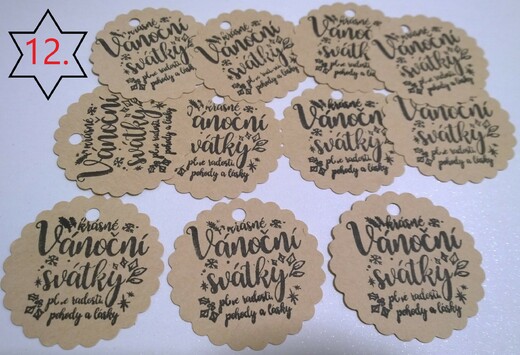 12.
krásné
Vánoční
svátky
plné radosti
pohody a lásky
krásné
Vánoční
svátky
plné radosti
pohody a lásky
krásné
Vánoční
svátky
krásné
Vánoční
svátky
plné radosti
pohody a lásky
krásné
Vánoční
svátky
plné radosti
pohody a lásky
krásné
ánoční
vátky
plné radosti
pohody a lásky
krásné
Vánoční
svátky
plné radosti
pohody a lásky
Vánoční
svátky
plné radosti
pohody a lásky
krásné
Vánoční
svátky
plné radosti
pohody a lásky
krásné
Vánoční
svátky
plné radosti
pohody a lásky
krásné
Vánoční
svátky
plné radosti
pohody a lásky